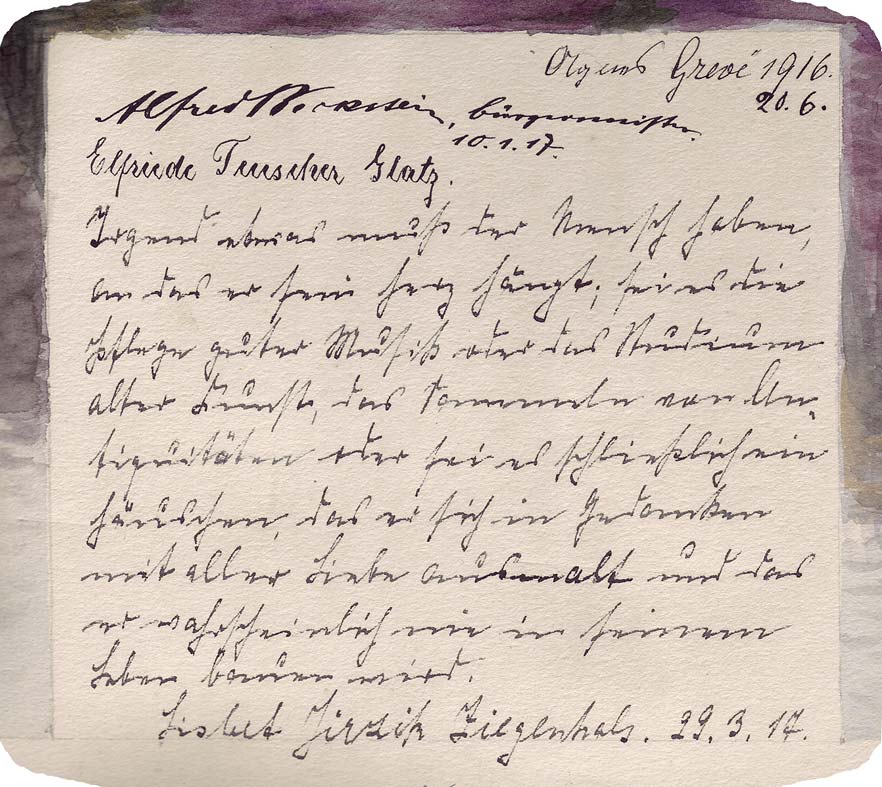 Grevé 1916.
20. 6.
Alfred, Bürgermeister.
10. 1. 17.
Elfriede Teuscher Glatz.
Irgend etwas muß der Mensch haben,
an das er sein Herz hängt; sei es die
Pflege guter Musik oder das Studium
alter Kunst, das Sammeln von An-
tiquitäten oder sei es schließlich ein
Häuschen, das er sich in Gedanken
mit aller Liebe ausmalt und das
er wahrscheinlich nie in seinem
Leben bauen wird.
Lisbet Ziegenhals. 29. 3. 17.